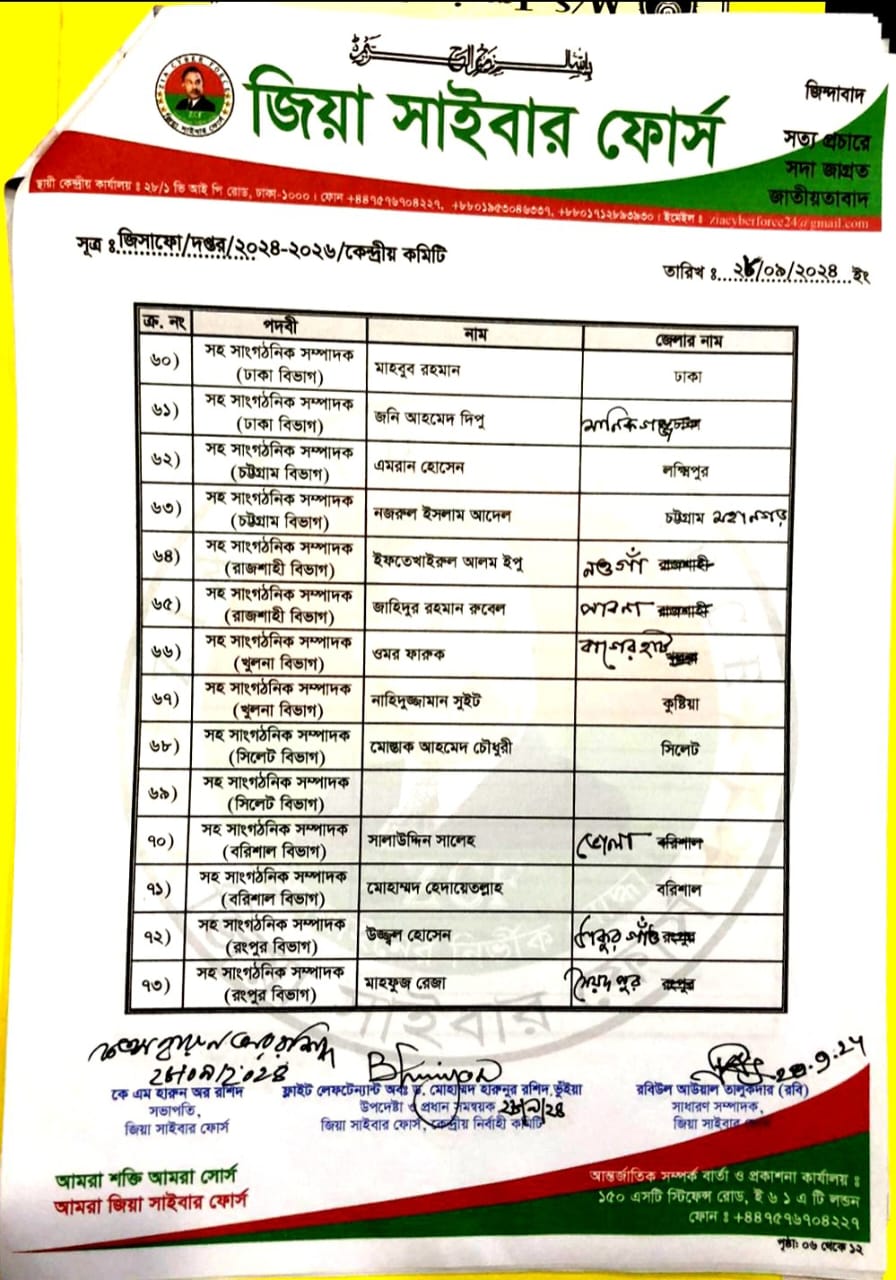 জিয়া সাইবার ফোর্স
জিন্দাবাদ
সত্য প্রচারে
সদা জাগ্রত
জাতীয়তাবাদ
স্থায়ী কেন্দ্রীয় কার্যালয় ঃ ২৮/১ ভি আই পি রোড, ঢাকা-১০০০। ফোন +৪৪৭৫৭৬৭০৪২২৭, +৮৮০১৯৫৩০৪৬৩৩৭, +৮৮০১৭১২৮৯৩৯৩০। ইমেইল ঃ ziacyberforce24@gmail.com
সূত্র ঃ জিসাফো/দপ্তর/২০২৪-২০২৬/কেন্দ্রীয় কমিটি
তারিখ ঃ ২৮/০৯/২০২৪ ইং
ক্র. নং পদবী নাম জেলার নাম
৬০) সহ সাংগঠনিক সম্পাদক (ঢাকা বিভাগ) মাহবুব রহমান ঢাকা
৬১) সহ সাংগঠনিক সম্পাদক (ঢাকা বিভাগ) জনি আহমেদ দিপু মানিকগঞ্জ
৬২) সহ সাংগঠনিক সম্পাদক (চট্টগ্রাম বিভাগ) এমরান হোসেন লক্ষিপুর
৬৩) সহ সাংগঠনিক সম্পাদক (চট্টগ্রাম বিভাগ) নজরুল ইসলাম আদেল চট্টগ্রাম মহানগর
৬৪) সহ সাংগঠনিক সম্পাদক (রাজশাহী বিভাগ) ইফতেখাইরুল আলম ইপু নওগাঁ রাজশাহী
৬৫) সহ সাংগঠনিক সম্পাদক (রাজশাহী বিভাগ) জাহিদুর রহমান রুবেল পাবনা রাজশাহী
৬৬) সহ সাংগঠনিক সম্পাদক (খুলনা বিভাগ) ওমর ফারুক বাগেরহাট
৬৭) সহ সাংগঠনিক সম্পাদক (খুলনা বিভাগ) নাহিদুজ্জামান সুইট কুষ্টিয়া
৬৮) সহ সাংগঠনিক সম্পাদক (সিলেট বিভাগ) মোস্তাক আহমেদ চৌধুরী সিলেট
৬৯) সহ সাংগঠনিক সম্পাদক (সিলেট বিভাগ)
৭০) সহ সাংগঠনিক সম্পাদক (বরিশাল বিভাগ) সালাউদ্দিন সালেহ ভোলা বরিশাল
৭১) সহ সাংগঠনিক সম্পাদক (বরিশাল বিভাগ) মোহাম্মদ হেদায়েতল্লাহ বরিশাল
৭২) সহ সাংগঠনিক সম্পাদক (রংপুর বিভাগ) উজ্জ্বল হোসেন ঠাকুরগাঁও রংপুর
৭৩) সহ সাংগঠনিক সম্পাদক (রংপুর বিভাগ) মাহফুজ রেজা সৈয়দপুর রংপুর
২৮/০৯/২০২৪
কে এম হারুন অর রশিদ
সভাপতি,
জিয়া সাইবার ফোর্স
Bhuiyan
ফ্লাইট লেফটেন্যান্ট অবঃ ড. মোহাম্মদ হারুনুর রশিদ ভুঁইয়া
উপদেষ্টা ও প্রধান সমন্বয়ক
জিয়া সাইবার ফোর্স, কেন্দ্রীয় নির্বাহী কমিটি
রবিউল আউয়াল তালুকদার (রবি)
সাধারণ সম্পাদক,
জিয়া সাইবার ফোর্স
আমরা শক্তি আমরা সোর্স
আমরা জিয়া সাইবার ফোর্স
আন্তর্জাতিক সম্পর্ক বার্তা ও প্রকাশনা কার্যালয় ঃ
১৫০ এসটি স্টিফেন্স রোড, ই ৬ ১ এ টি লন্ডন
ফোন ঃ +৪৪৭৫৭৬৭০৪২২৭
পৃষ্ঠা: ০৬ থেকে ১২